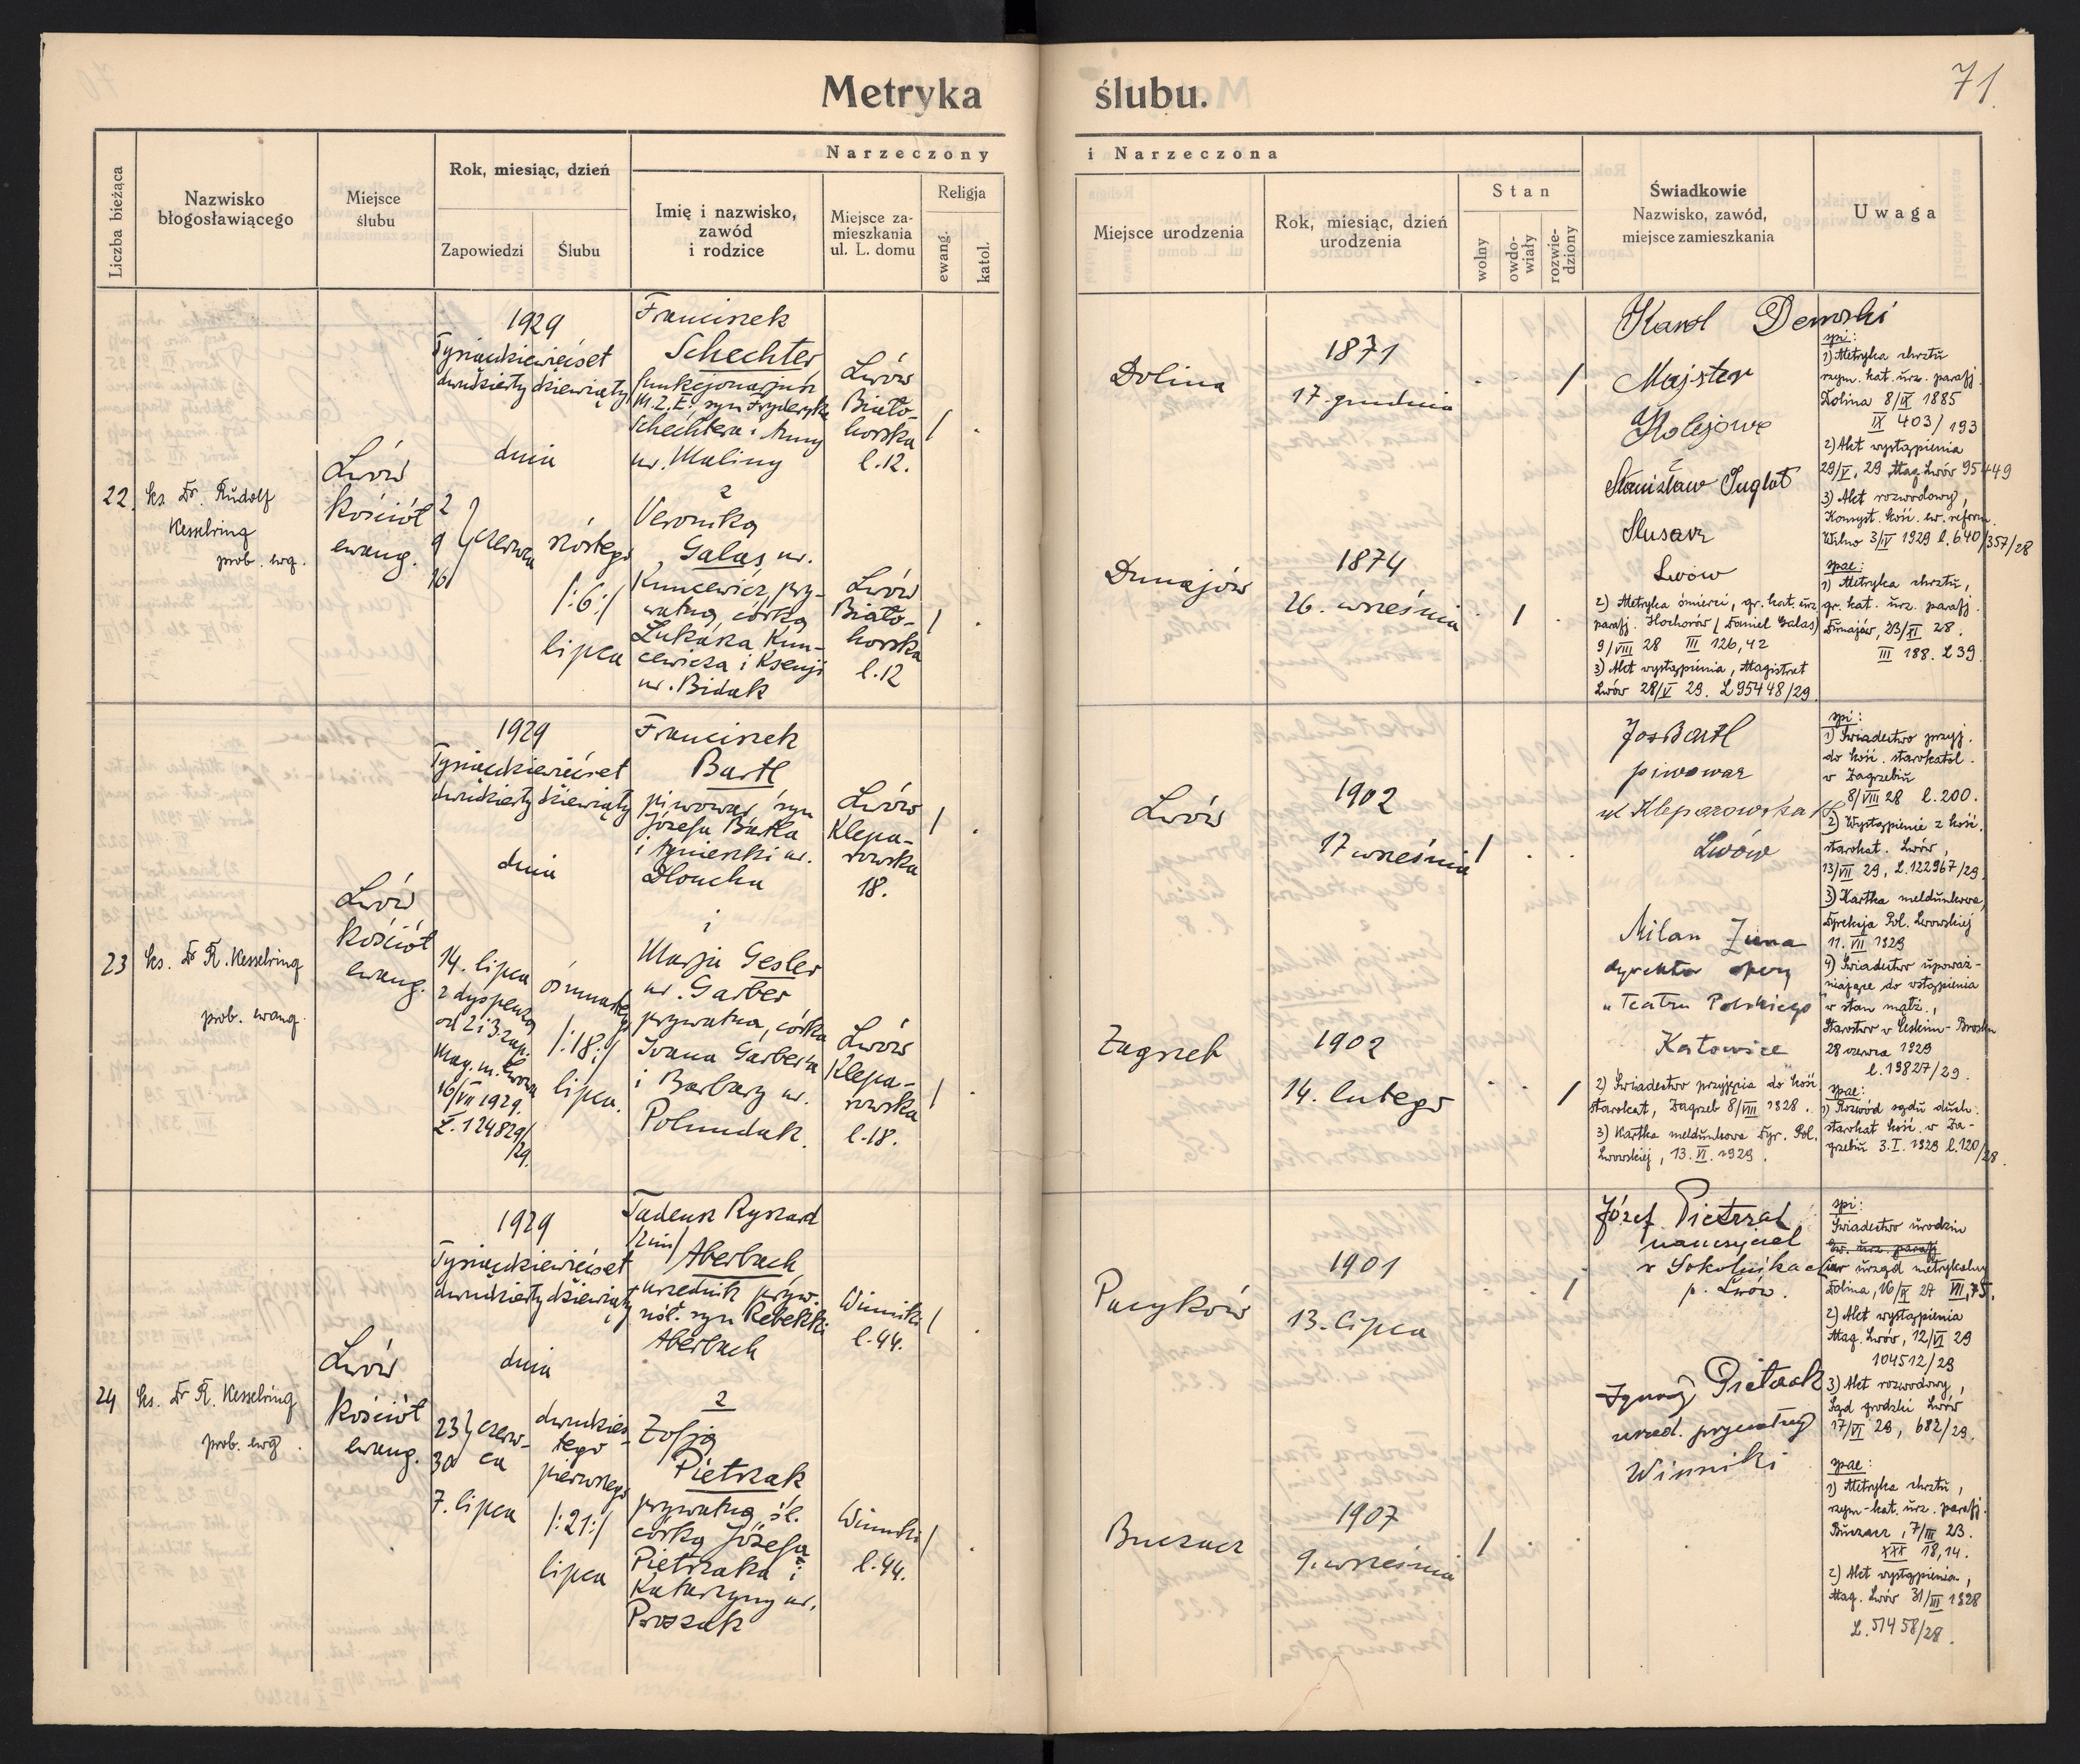 71.
Metryka ślubu.
Narzeczony i Narzeczona
Liczba bieżąca
Nazwisko
błogosławiącego
Miejsce
ślubu
Rok, miesiąc, dzień
Zapowiedzi
Ślubu
Imię i nazwisko,
zawód
i rodzice
Miejsce za-
mieszkania
ul. L. domu
Religja
ewang.
katol.
Miejsce urodzenia
Rok, miesiąc, dzień
urodzenia
Stan
wolny
owdo-
wiały
rozwie-
dziony
Świadkowie
Nazwisko, zawód,
miejsce zamieszkania
Uwaga
22.
ks. Dr. Rudolf
Kesselring
prob. ewg.
Lwów
kościół
ewang.
1929
Tysiącdziewięćset
dwudziesty dziewiąty
dnia
2
9
16
czerwca
szóstego
/:6:/
lipca
Franciszek
Schechter
funkcjonarjusz
M.Z.E., syn Fryderyka
Schechtera i Anny
ur. Maliny
z
Veroniką
Galas ur.
Kuncewicz, pry-
watną, córką
Łukasza Kun-
cewicza i Ksenji
ur. Bidak
Lwów
Biało-
horska
l.12.
Lwów
Biało-
horska
l.12
/ .
/ .
Dolina
1871
17. grudnia
. . /
Dunajów
1874
26. września
. / .
Karol Demski
Majster
Kolejowy
Stanisław Inglot
Slusarz
Lwów
2) Metryka śmierci, gr. kat. urz.
parafj. Hochorów (Daniel Galas)
9/VIII 28 III 126,42
3) Akt wystąpienia, Magistrat
Lwów 28/V 29. L 95448/29
spi:
1) Metryka chrztu
rzym. kat. urz. parafj.
Dolina 8/IX 1885
IX 403/193
2) Akt wystąpienia
29/V. 29 Mag. Lwów 95449
3) Akt rozwodowy,
Konsyst. kość. ew. reform.
Wilno 3/IV 1929 l. 640/357/28
spae:
1) Metryka chrztu,
gr. kat. urz. parafj.
Dunajów, 23/XI 28.
III 188. L 39.
23
ks. Dr R. Kesselring
prob. ewang.
Lwów
kościół
ewang.
1929
Tysiącdziewięćset
dwudziesty dziewiąty
dnia
14. lipca
z dyspenzą
od 2 i 3 zap.
Mag. m. Lwowa
16/VII 1929.
L. 124829/
/29.
ósmnastego
/:18:/
lipca.
Franciszek
Bartl
piwowar, syn
Józefa Bartla
i Agnieszki ur.
Dloucha
i
Marja Gesler
ur. Garber
prywatna, córka
Ivana Garbera
i Barbary ur.
Polundak.
Lwów
Klepa-
rowska
18.
Lwów
Klepa-
rowska
l.18.
/ .
/ .
Lwów
1902
17 września
/ . .
Zagrzeb
1902
14. lutego
. . /
Jos Bartl
piwowar
ul Kleparowska 18
Lwów
Milan Zuna
dyrektor opery
"Teatru Polskiego"
Katowice
2) Świadectwo przyjęcia do kość.
starokat, Zagrzeb 8/VIII 1928.
3) Kartka meldunkowa Dyr. Pol.
Lwowskiej, 13. VI. 1929.
spi:
1) Świadectwo przyj.
do kość. starokatol.
w Zagrzebiu
8/VIII 28 l. 200.
2) Wystąpienie z kość.
starokat. Lwów,
13/VII 29, L. 122967/29
3) Kartka meldunkowa,
Dyrekcja Pol. Lwowskiej
11. VII 1929
4) Świadectwo upoważ-
niające do wstąpienia
w stan małż.,
Starostwo w
28 czerwca 1929
l. 19827/29.
spae:
1) Rozwód sądu duch.
starokat. kość. w Za-
grzebiu 3. I. 1929 l. 120/28.
24
ks. Dr R. Kesselring
prob. ewg.
Lwów
kościół
ewang.
1929
Tysiącdziewięćset
dwudziesty dziewiąty
dnia
23
30
czerw-
ca
7. lipca
dwudzies-
tego
pierwszego
/:21:/
lipca
Tadeusz Ryszard
/2im/
Aberbach
urzędnik pryw.
nśl. syn Rebekki
Aberbach
z
Zofją
Pietrzak
prywatną, śl.
córką Józefa
Pietrzaka i
Katarzyny ur.
Proszak
Winniki
l.44.
Winniki
l.44.
/ .
/ .
Pacyków
1901
13. lipca
/
Buczacz
1907
9. września
/ . .
Józef Pietrzak
nauczyciel
w Sokolnikach
p. Lwów.
Ignacy Pietrzak
urzęd. prywatny
Winniki
spi:
Świadectwo urodzin
Ew. urz. parafj
izr urząd metrykalny
Dolina, 16/IX 27 VII, 75.
2) Akt wystąpienia
Mag. Lwów, 12/VI 29
104512/29
3) Akt rozwodowy,
Sąd grodzki Lwów
17/VI 29, 682/29.
spae:
1) Metryka chrztu,
rzym-kat. urz. parafj.
Buczacz, 7/III 23.
XXX 18,14.
2) Akt wystąpienia,
Mag. Lwów 31/III 1928
L. 51458/28.